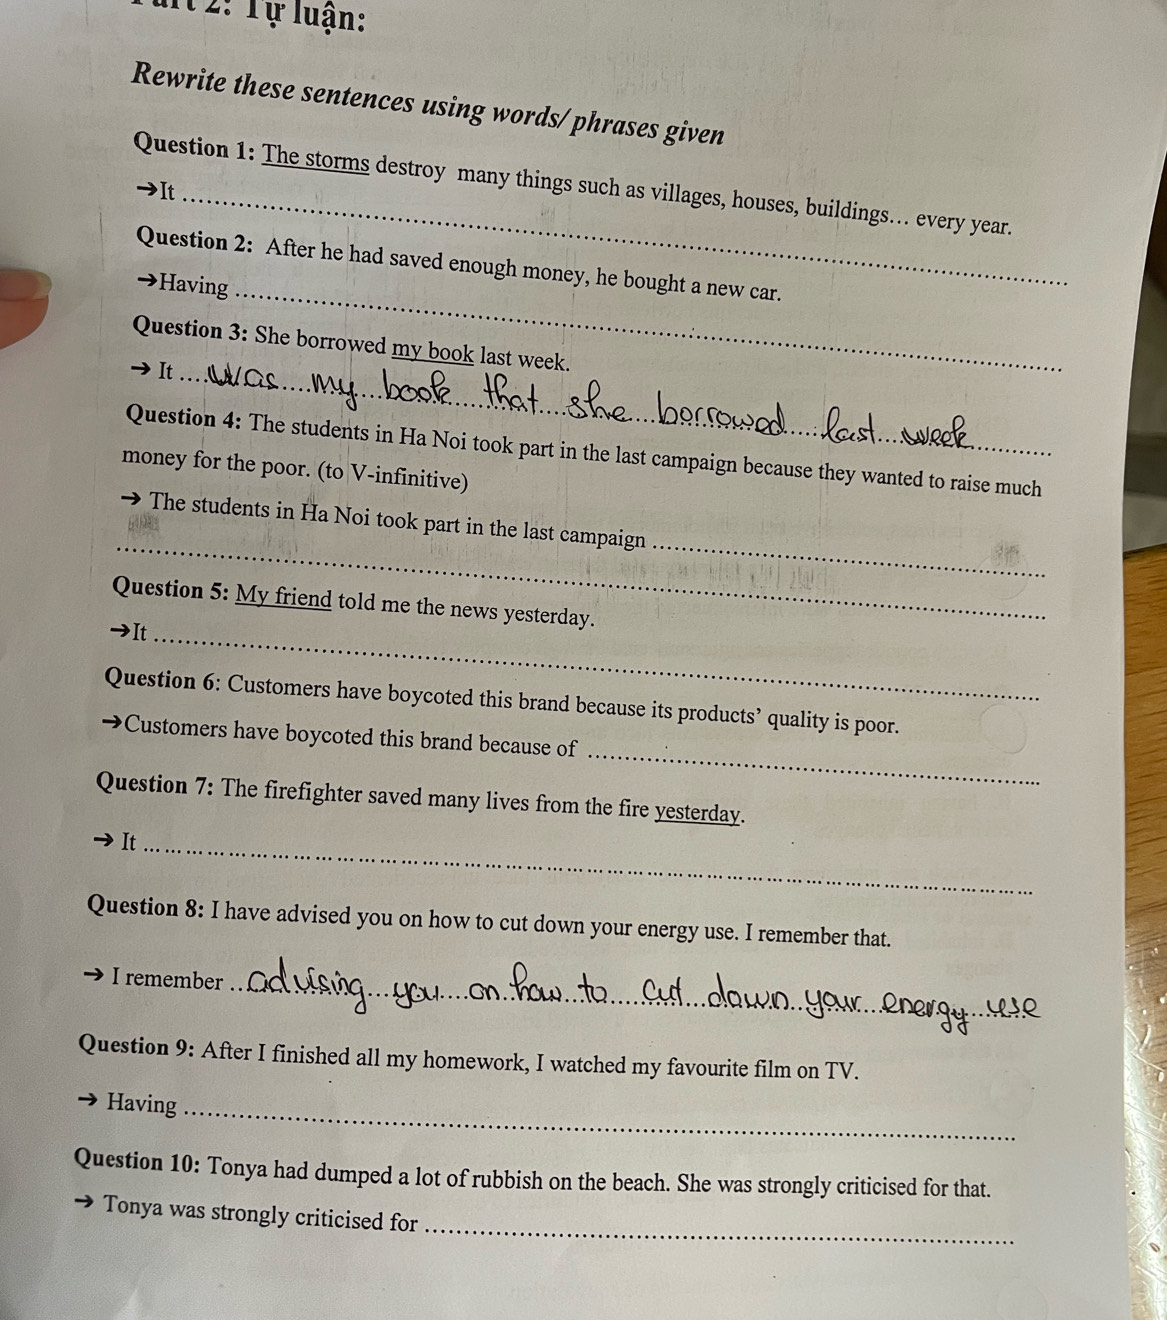 2: Tự luận:
Rewrite these sentences using words/ phrases given
Question 1: The storms destroy many things such as villages, houses, buildings… every year.
➔It ........................................................................................................
Question 2: After he had saved enough money, he bought a new car.
➔Having ........................................................................................................
Question 3: She borrowed my book last week.
➔ It ....was....my...book....that....she...borrowed....last...week..........
Question 4: The students in Ha Noi took part in the last campaign because they wanted to raise much
money for the poor. (to V-infinitive)
➔ The students in Ha Noi took part in the last campaign ..................................................
........................................................................................................
Question 5: My friend told me the news yesterday.
➔It ........................................................................................................
Question 6: Customers have boycoted this brand because its products’ quality is poor.
➔Customers have boycoted this brand because of ..................................................
Question 7: The firefighter saved many lives from the fire yesterday.
➔ It ........................................................................................................
Question 8: I have advised you on how to cut down your energy use. I remember that.
➔ I remember ..advising...you....on..how...to....cut...down..your...energy...use
Question 9: After I finished all my homework, I watched my favourite film on TV.
➔ Having ........................................................................................................
Question 10: Tonya had dumped a lot of rubbish on the beach. She was strongly criticised for that.
➔ Tonya was strongly criticised for ..................................................................